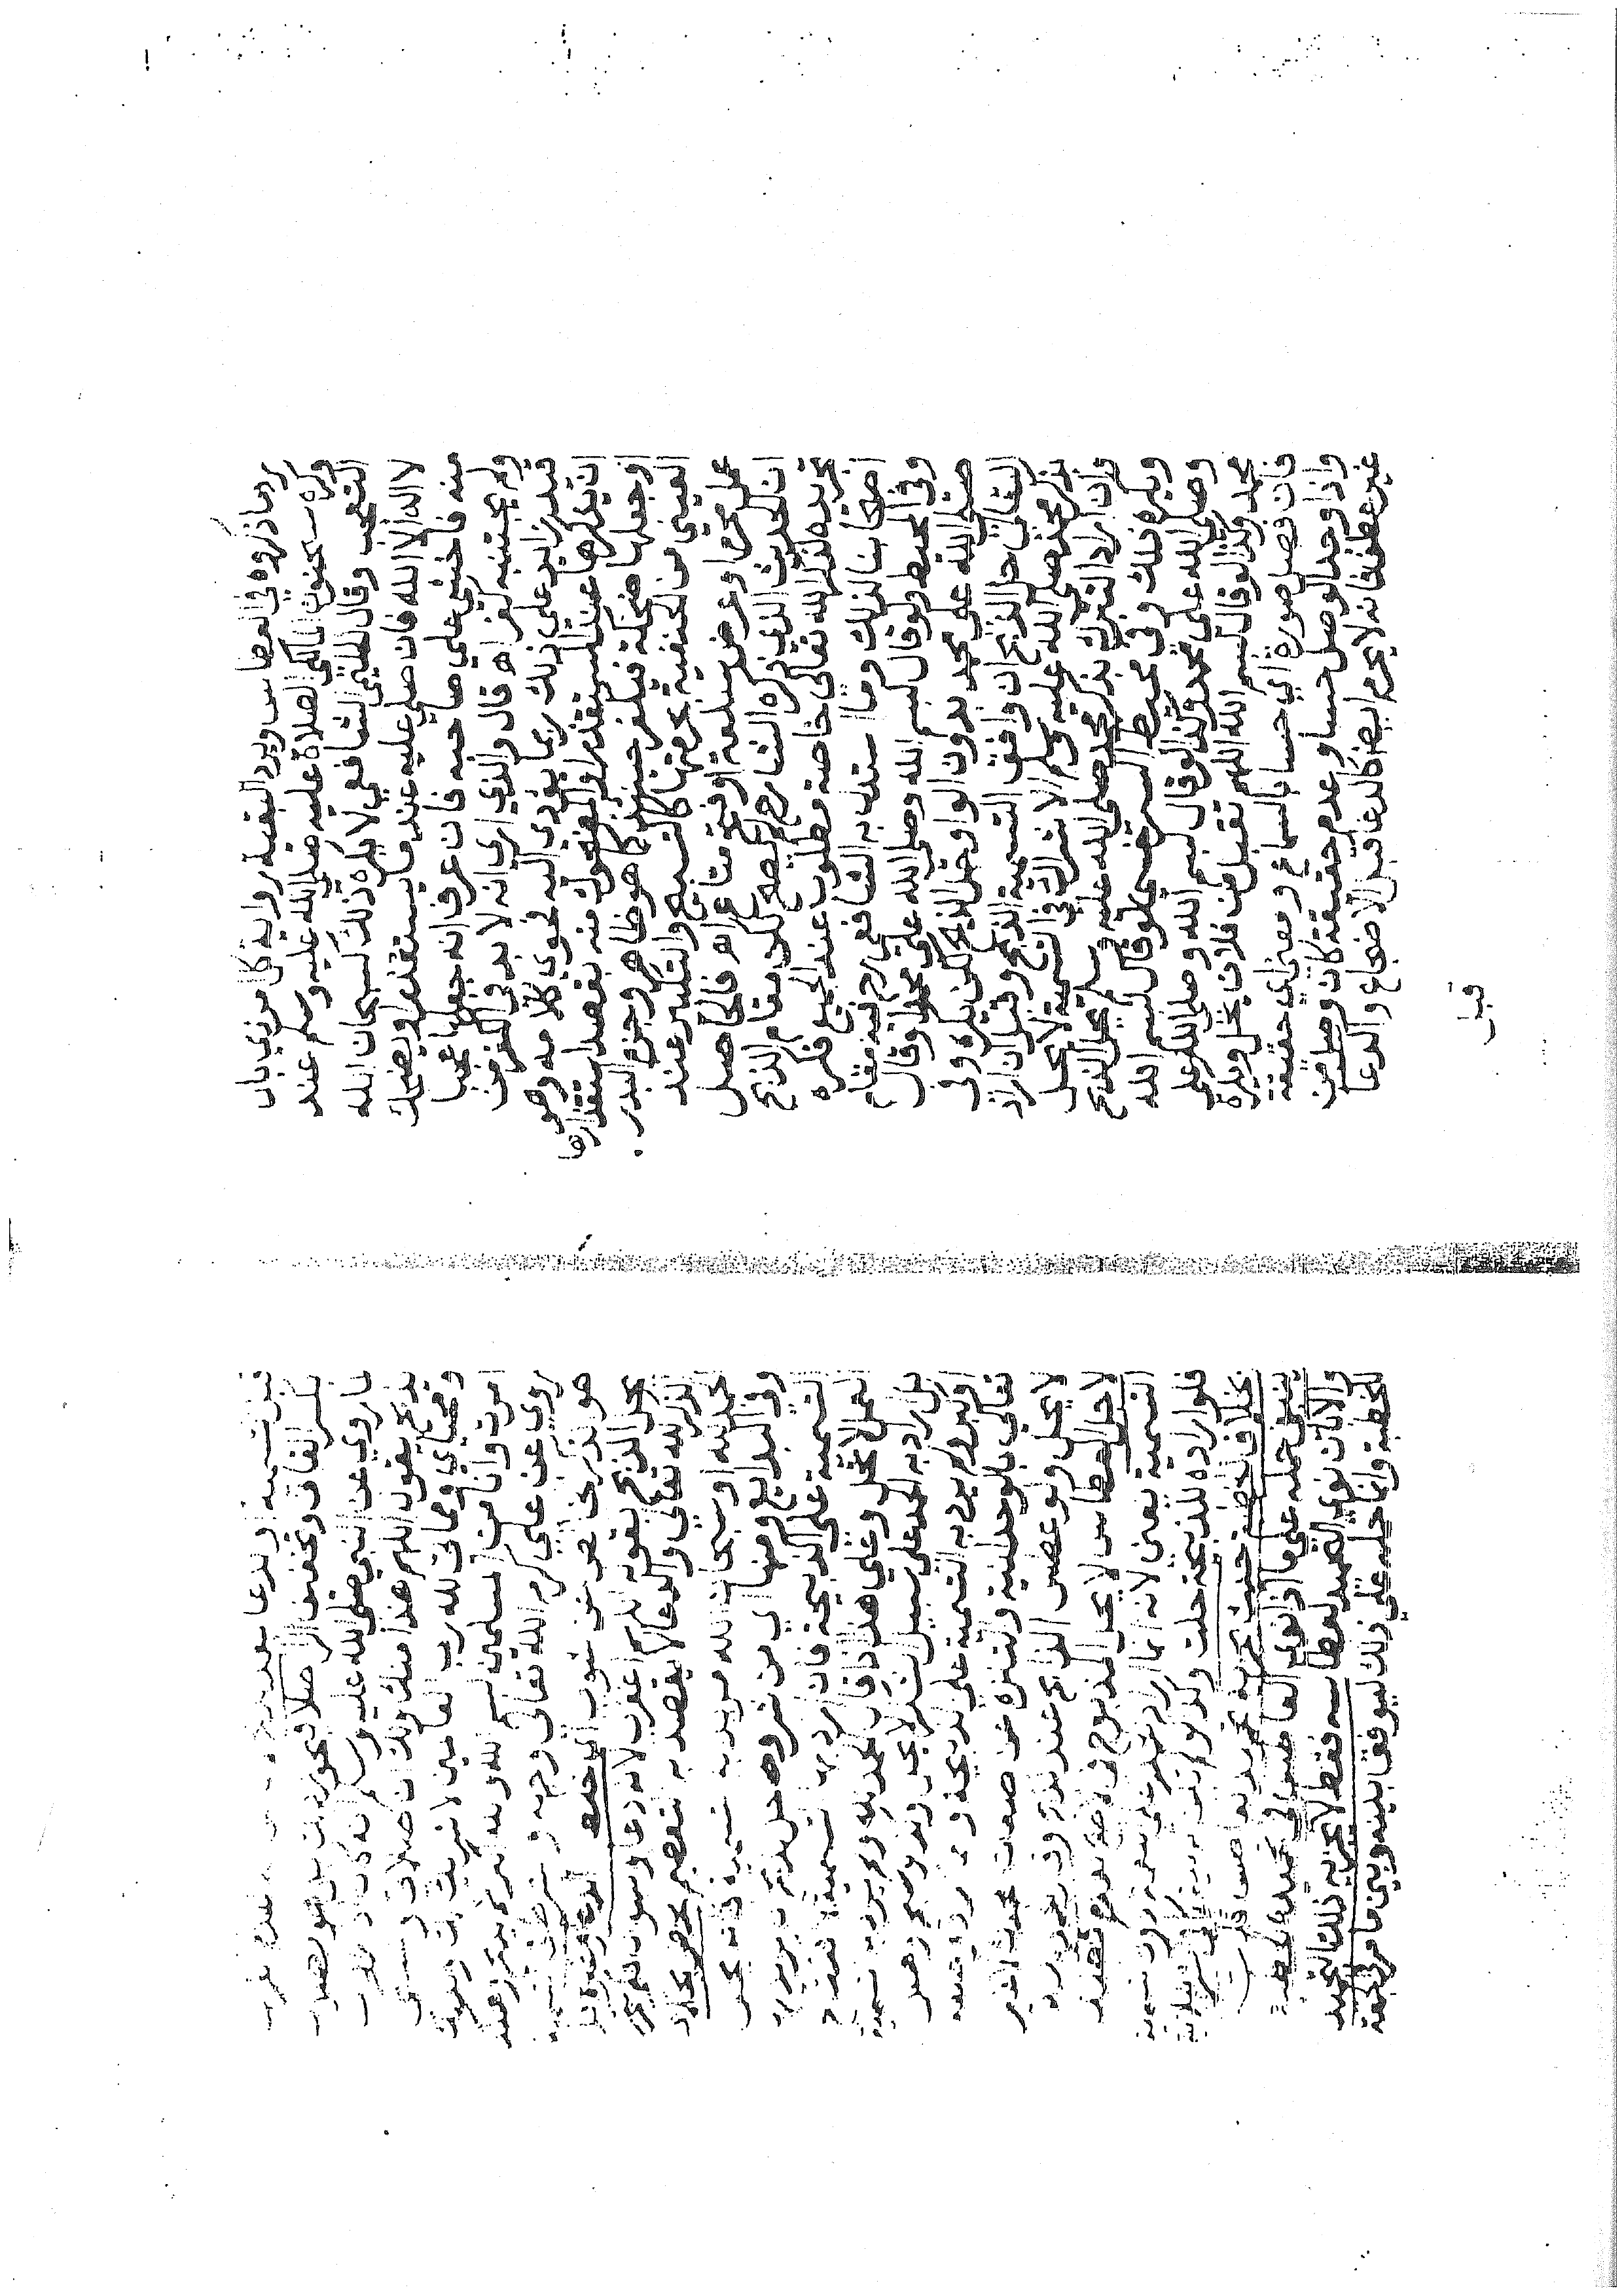 رد ما ذكروه في العطاس ويرد البقية رواية كل امر ذي بال
وكره سحنون المالكي الصلاة عليه صلى الله عليه وسلم عند
التعجب وقال الحليمي الشافعي لا يكره ذلك كسبحان الله
لا اله الا الله فان صلى عليه عند ما يستقذر او يضحك
منه فاخشي على صاحبه فان عرف انه جعلها عجبا
ولم يجتنبه كفر اه قال والذي اري انه لا بد في الكفر من
قيد زايد على ذلك ربما يؤدي اليه فحوى كلامه وهو
ان يذكرها عند المستقذر او المضحوك منه بقصد استقذارها
او جعلها ضحكة فيكفر حينئذ كما هو ظاهر وجزم البدر
العيني من الحنفية بحرمتها كالتسبيح والتكبير عند
عمل محرم او عرض سلعة او فتح متاع اه فالحاصل
ان الحديث الذي ذكره الشارح لم يصح لكن مقام الذبح
تجريده لذكر الله تعالى خاصة مطلوب عند الجميع فكره
اضحابنا لذلك وما استدل به الشافعي رح فيه مقام
وفي المحيط ولو قال بسم الله وصلى الله على محمد او قال
صلى الله على محمد بدون الواو حل الذبح لكن يكره وفي
البقالي حل الذبح ان وافق التسمية الذبح وقيل ان اراد
بذكر محمد صلى الله عليه وسلم الاشراك في التسمية لا يحل
وان اراد التبرك بذكر محمد صلى الله عليه وسلم يحل الذبح
ويكره ذلك وفي محيط السرخسي ولو قال بسم الله
وصلى الله على محمد وكذا لو قال بسم الله وصلى الله على
محمد وكذا لو قال بسم الله اللهم تقبل من فلان يحل ويكره
فان فصل صورة اي حسا بالسماع ومعنى اي حقيقة
واذا وجد الوصل حسا وعدم حقيقة كان وصل من
غير عطف فانه لا يحرم ايضا كالدعا قبل الاضجاع والدعا
قبل
قبل التسمية او دعا بعد
بكسر القاف وتخفيف الراء
ما روي عن النبي صلى الله عليه وسلم انه كان اذا اراد ان
يذبح يقول اللهم هذا منك ولك ان صلاتي ونسكي
ومحياي ومماتي لله رب العالمين لا شريك له وبذلك
امرت وانا من المسلمين بسم الله والله اكبر ثم يذبح وهكذا
روي عن علي كرم الله تعالى وجهه والشرط في التسمية
هو الذكر الخالص عن شوب
يحل الذبح بقوله اللهم اغفر لي لانه دعا وسوال فلم يكن
ذكر لله تعالى والدعا لا يقصد به التعظيم المحض بخلاف
الحمد لله او سبحان الله مريدا به التسمية فانه يحل
وفي البدايع ومنها اي من شروط حل الذبح ان يريد
التسمية على الذبيحة فان اراد به التسمية
العمل لا يحل وعلي هذا اذا قال الحمد لله ولم يرد به التسمية
بل اراد به الحمد على سبيل الشكر لا يحل وكذا لو سبح او هلل
او كبر ولم يرد به التسمية على الذبيحة وانما اراد به وصفه
تعالى بالوحدانية والتنزه عن صفات الحدوث لا غير
لا يحل ولو عطس الذابح عند الذبح فقال الحمد لله
لاجل العطاس لا يحل المذبوح في الاصح لعدم قصد
التسمية يعني لانه انما اراد شكر الله على نعمه دون التسمية
فلو اراده للذبيحة حلت وكذا لو لم تكن له نية
بخلاف الخطبة حيث يجزيه تحميد العاطس قلت
ينبغي حمله على ما اذا نوى العاطس في تحميده الخطبة
والا بان نوى الحمد لعطاسه فقط لا يجزيه ذلك التحميد
للخطبة وانما حمله على ذلك ليوفق بينه وبين ما مر في الجمعة